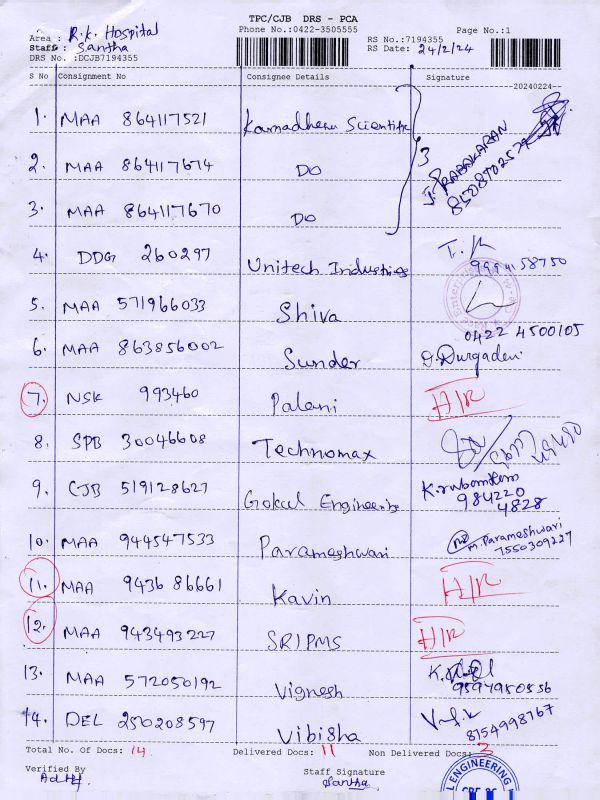 TPC/CJB DRS - PCA
Area : R.K. Hospital Phone No.:0422-3505555 RS No.:7194355 Page No.:1
Staff : Santha RS Date: 24/2/24
DRS No. :DCJB7194355
S No Consignment No Consignee Details Signature
20240224
1. MAA 864117521 Kamadhenu Scientific
2. MAA 864117674 DO 3 J. PRABAKARAN
3. MAA 864117670 DO
4. DDG 260297 Unitech Industries 9994158750
5. MAA 571966033 Shiva 0422 4500105
6. MAA 863856002 Sunder D. Durgadevi
7. NSK 993460 Palani H/R
8. SPB 30046608 Technomax
9. CJB 519128627 Gokul Engineering 984220
4828
10. MAA 944547533 Parameshwari M. Parameshwari
7550309227
11. MAA 943686661 Kavin H/R
12. MAA 943493227 SRIPMS H/R
13. MAA 572050192 Vignesh
14. DEL 250208597 Vibisha 8754998767
Total No. Of Docs: 14 Delivered Docs: 11 Non Delivered Docs: 3
Verified By Staff Signature
Santha
ENGINEERING